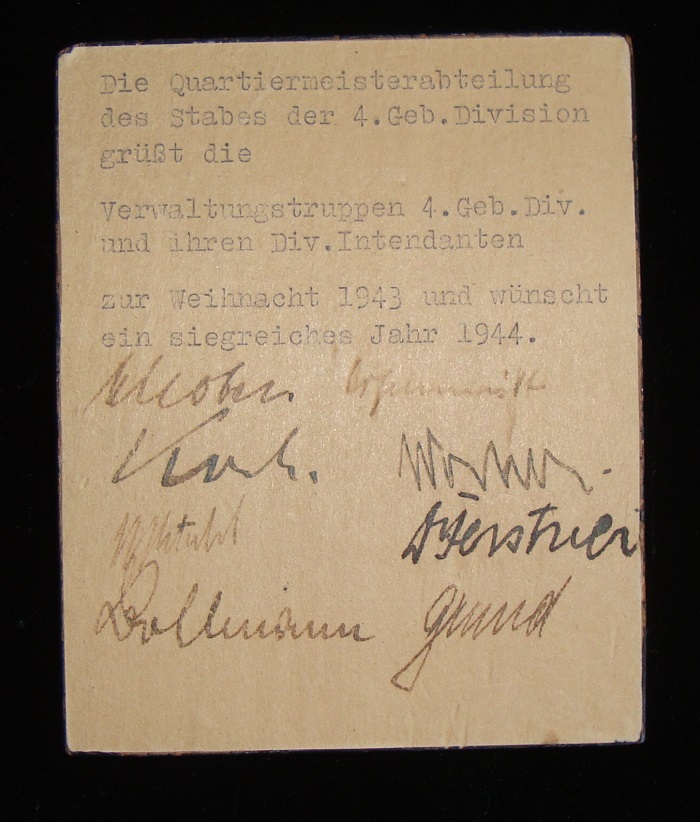 Die Quartiermeisterabteilung
des Stabes der 4.Geb.Division
grüßt die
Verwaltungstruppen 4.Geb.Div.
und ihren Div.Intendanten
zur Weihnacht 1943 und wünscht
ein siegreiches Jahr 1944.
Koch.
Dollmann Grund